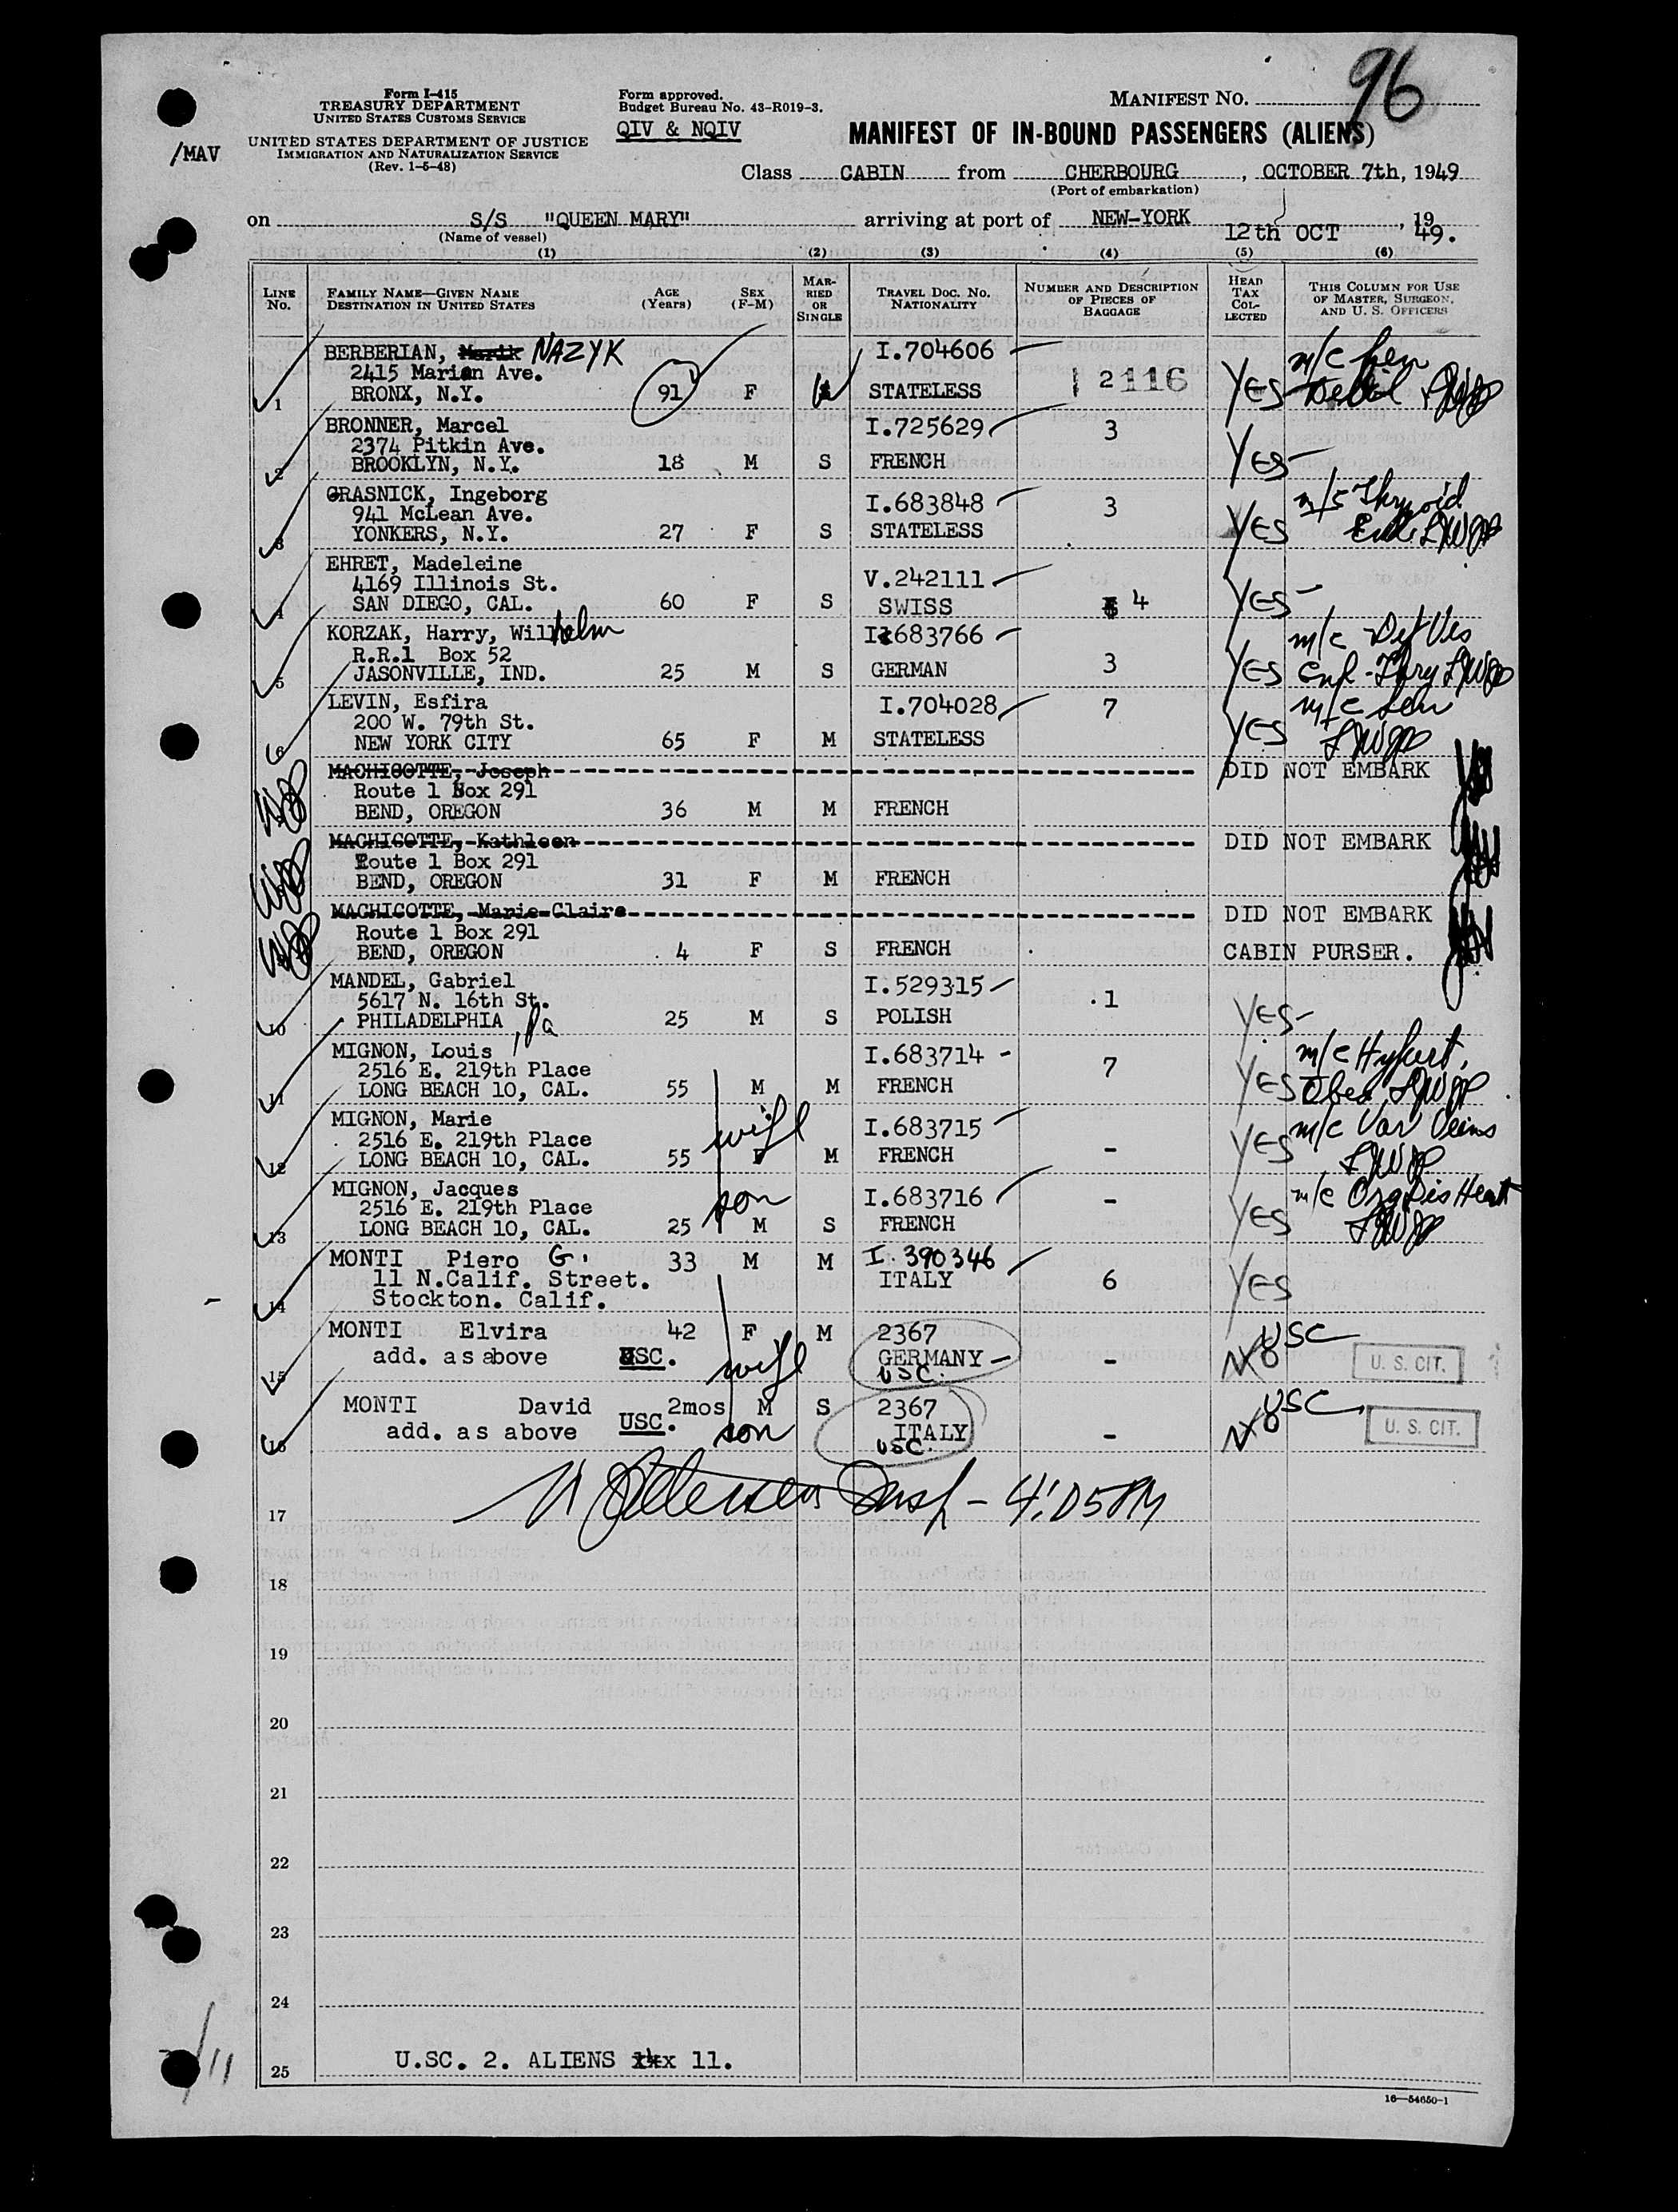 96
Form I-415
TREASURY DEPARTMENT
UNITED STATES CUSTOMS SERVICE
UNITED STATES DEPARTMENT OF JUSTICE
IMMIGRATION AND NATURALIZATION SERVICE
(Rev. 1-5-48)
/MAV
Form approved.
Budget Bureau No. 43-R019-3.
QIV & NQIV
MANIFEST NO.
MANIFEST OF IN-BOUND PASSENGERS (ALIENS)
Class CABIN from CHERBOURG, OCTOBER 7th, 1949
(Port of embarkation)
on S/S "QUEEN MARY" arriving at port of NEW-YORK 12th OCT, 19 49.
(Name of vessel)
(1) (2) (3) (4) (5) (6)
LINE No. FAMILY NAME—GIVEN NAME DESTINATION IN UNITED STATES AGE (Years) SEX (F-M) MARRIED OR SINGLE TRAVEL DOC. NO. NATIONALITY NUMBER AND DESCRIPTION OF PIECES OF BAGGAGE HEAD TAX COLLECTED THIS COLUMN FOR USE OF MASTER, SURGEON, AND U. S. OFFICERS
BERBERIAN, Marik NAZYK I.704606 m/c Sen
2415 Marion Ave. 2 116
1 BRONX, N.Y. 91 F STATELESS YES
BRONNER, Marcel I.725629 3
2374 Pitkin Ave.
2 BROOKLYN, N.Y. 18 M S FRENCH YES-
GRASNICK, Ingeborg I.683848 3 Thyroid
941 McLean Ave.
3 YONKERS, N.Y. 27 F S STATELESS YES
EHRET, Madeleine V.242111
4169 Illinois St.
4 SAN DIEGO, CAL. 60 F S SWISS 4 YES-
KORZAK, Harry, Wilhelm I.683766 m/c Def Vis
R.R.1 Box 52 3
5 JASONVILLE, IND. 25 M S GERMAN YES Enl-Thry
LEVIN, Esfira I.704028 7 m/c Sen
200 W. 79th St.
6 NEW YORK CITY 65 F M STATELESS YES
MACHICOTTE, Joseph DID NOT EMBARK
Route 1 Box 291
BEND, OREGON 36 M M FRENCH
MACHICOTTE, Kathleen DID NOT EMBARK
Route 1 Box 291
BEND, OREGON 31 F M FRENCH
MACHICOTTE, Marie-Claire DID NOT EMBARK
Route 1 Box 291
BEND, OREGON 4 F S FRENCH CABIN PURSER.
MANDEL, Gabriel I.529315
5617 N. 16th St. 1
10 PHILADELPHIA, Pa 25 M S POLISH YES-
MIGNON, Louis I.683714 - m/c Hypert,
2516 E. 219th Place 7
11 LONG BEACH 10, CAL. 55 M M FRENCH YES Obes
MIGNON, Marie I.683715 m/c Var Veins
2516 E. 219th Place wife
12 LONG BEACH 10, CAL. 55 F M FRENCH - YES
MIGNON, Jacques I.683716 - m/c Org Dis Heart
2516 E. 219th Place son
13 LONG BEACH 10, CAL. 25 M S FRENCH YES
MONTI Piero G. 33 M M I.390346
11 N.Calif. Street. ITALY 6 YES
14 Stockton. Calif.
MONTI Elvira 42 F M 2367 USC
add. as above USC. wife GERMANY - NO U. S. CIT.
15 USC.
MONTI David 2mos M S 2367 USC
add. as above USC. son ITALY - NO U. S. CIT.
16 USC.
Insp - 4:05PM
17
18
19
20
21
22
23
24
25 U.SC. 2. ALIENS 11.
11
16—54650-1